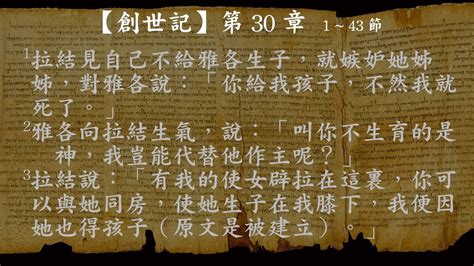 【創世記】第 30 章 1 ~ 43 節
1拉結見自己不給雅各生子，就嫉妒她姊
姊，對雅各說：「你給我孩子，不然我就
死了。」
2雅各向拉結生氣，說：「叫你不生育的是
神，我豈能代替他作主呢？」
3拉結說：「有我的使女辟拉在這裏，你可
以與她同房，使她生子在我膝下，我便因
她也得孩子（原文是被建立）。」